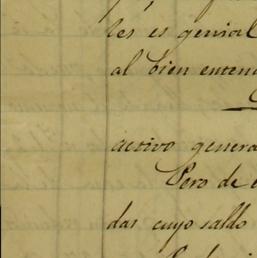 les es genial
al bien enten
activo genera
Pero de
das cuyo saldo